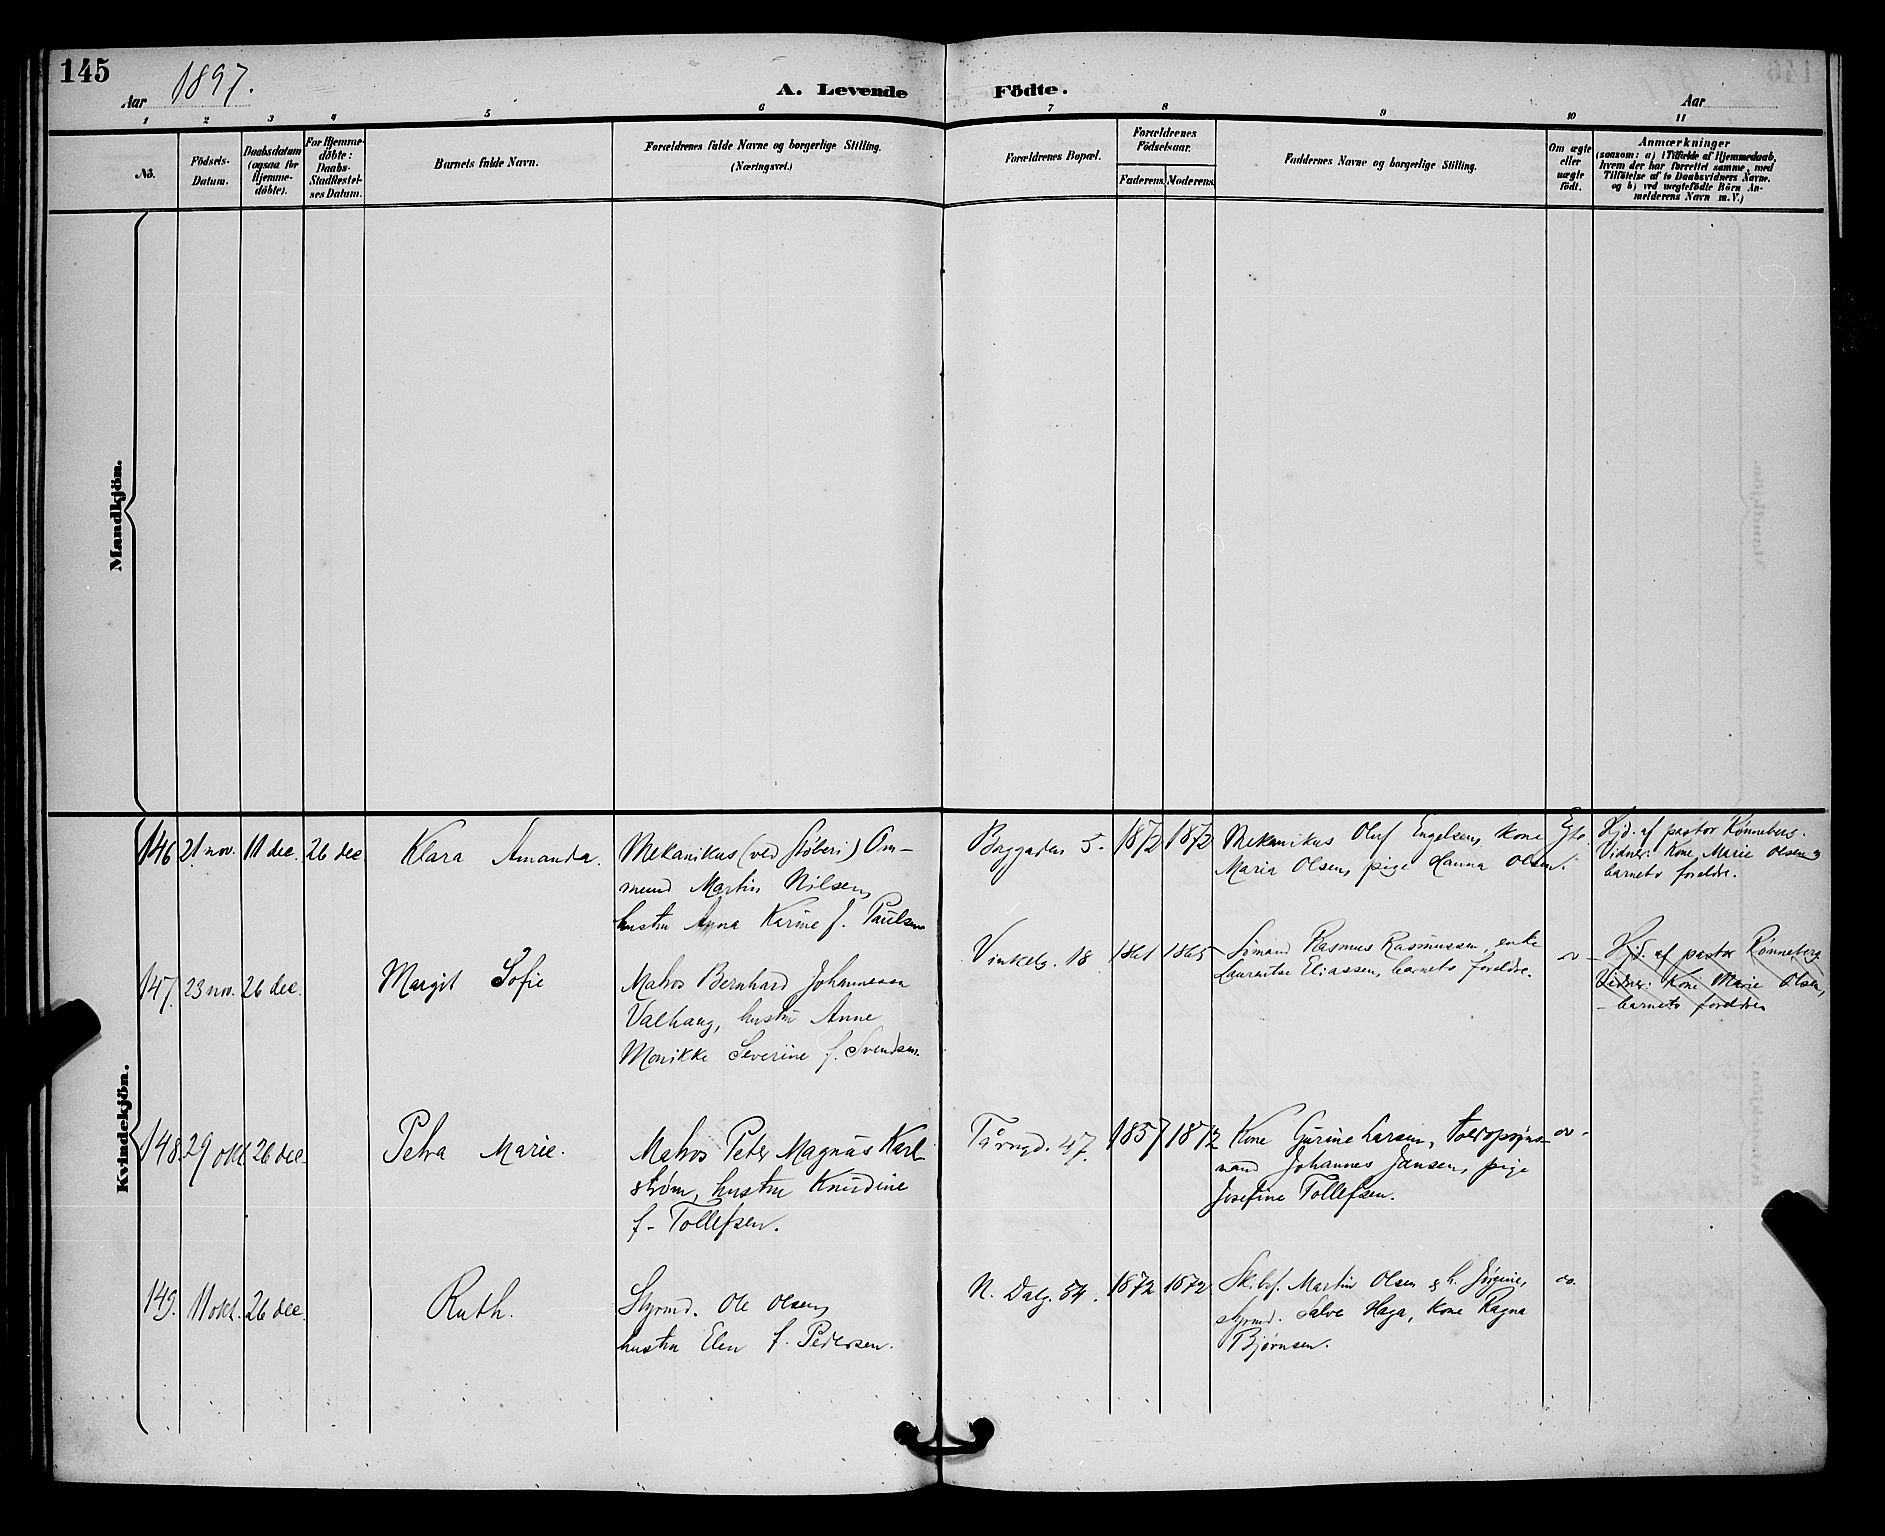 145
Aar 1897.
A. Levende Födte.
Aar
1 2 3 4 5 6 7 8 9 10 11
No.
Födsels-Datum.
Daabsdatum (ogsaa for Hjemme-döbte).
For Hjemme-döbte: Daabs-Stadfæstel-ses Datum.
Barnets fulde Navn.
Forældrenes fulde Navne og borgerlige Stilling.
(Næringsvei.)
Forældrenes Bopæl.
Forældrenes Födselsaar.
Faderens. Moderens.
Faddernes Navne og borgerlige Stilling.
Om ægte eller uægte födt.
Anmærkninger
(saasom: a) i Tilfælde af Hjemmedaab,
hvem der har forrettet samme, med
Tilföielse af to Daabsvidners Navne.
og b) ved uægtefödte Börn An-
melderens Navn m.V.)
Mandkjön.
Kvindekjön.
146 21 nov. 11 dec. 26 dec
Klara Amanda.
Mekanikus (ved Støberi) Om-
mund Martin Nilsen,
hustru Anna Karine f. Paulsen
Berggaden 5. 1872 1872
Mekanikus Oluf Engelsen, kone
Maria Olsen, pige Hanna Olsen.
Egte.
Hjd. af pastor Rønneberg.
Vidner: Kone Marie Olsen &
barnets foreldre.
147. 23 nov. 26 dec.
Margit Sofie
Matros Bernhard Johannesen
Valhaug, hustru Anne
Monikke Severine f. Svendsen.
Vinkelg. 18 1861 1865
Sømand Rasmus Rasmussen, enke
Lauritse Eliassen, barnets foreldre.
do
Hjd. af pastor Rønneberg
Vidner: Kone Marie Olsen,
barnets foreldre
148. 29 okt 26 dec.
Petra Marie.
Matros Peter Magnus Karl-
strøm, hustru Knudine
f. Tollefsen.
Tårngd. 47. 1857 1872
Kone Gurine Larsen, toldopsyns-
mand Johannes Jansen, pige
Josefine Tollefsen.
do.
149. 11 okt. 26 dec.
Ruth.
Styrmd. Ole Olsen,
hustru Elen f. Pedersen.
N. Dalg. 54. 1872 1872
Skibsf. Martin Olsen & h. Jørgine,
styrmd. Salve Haga, kone Ragna
Bjørnsen.
do.